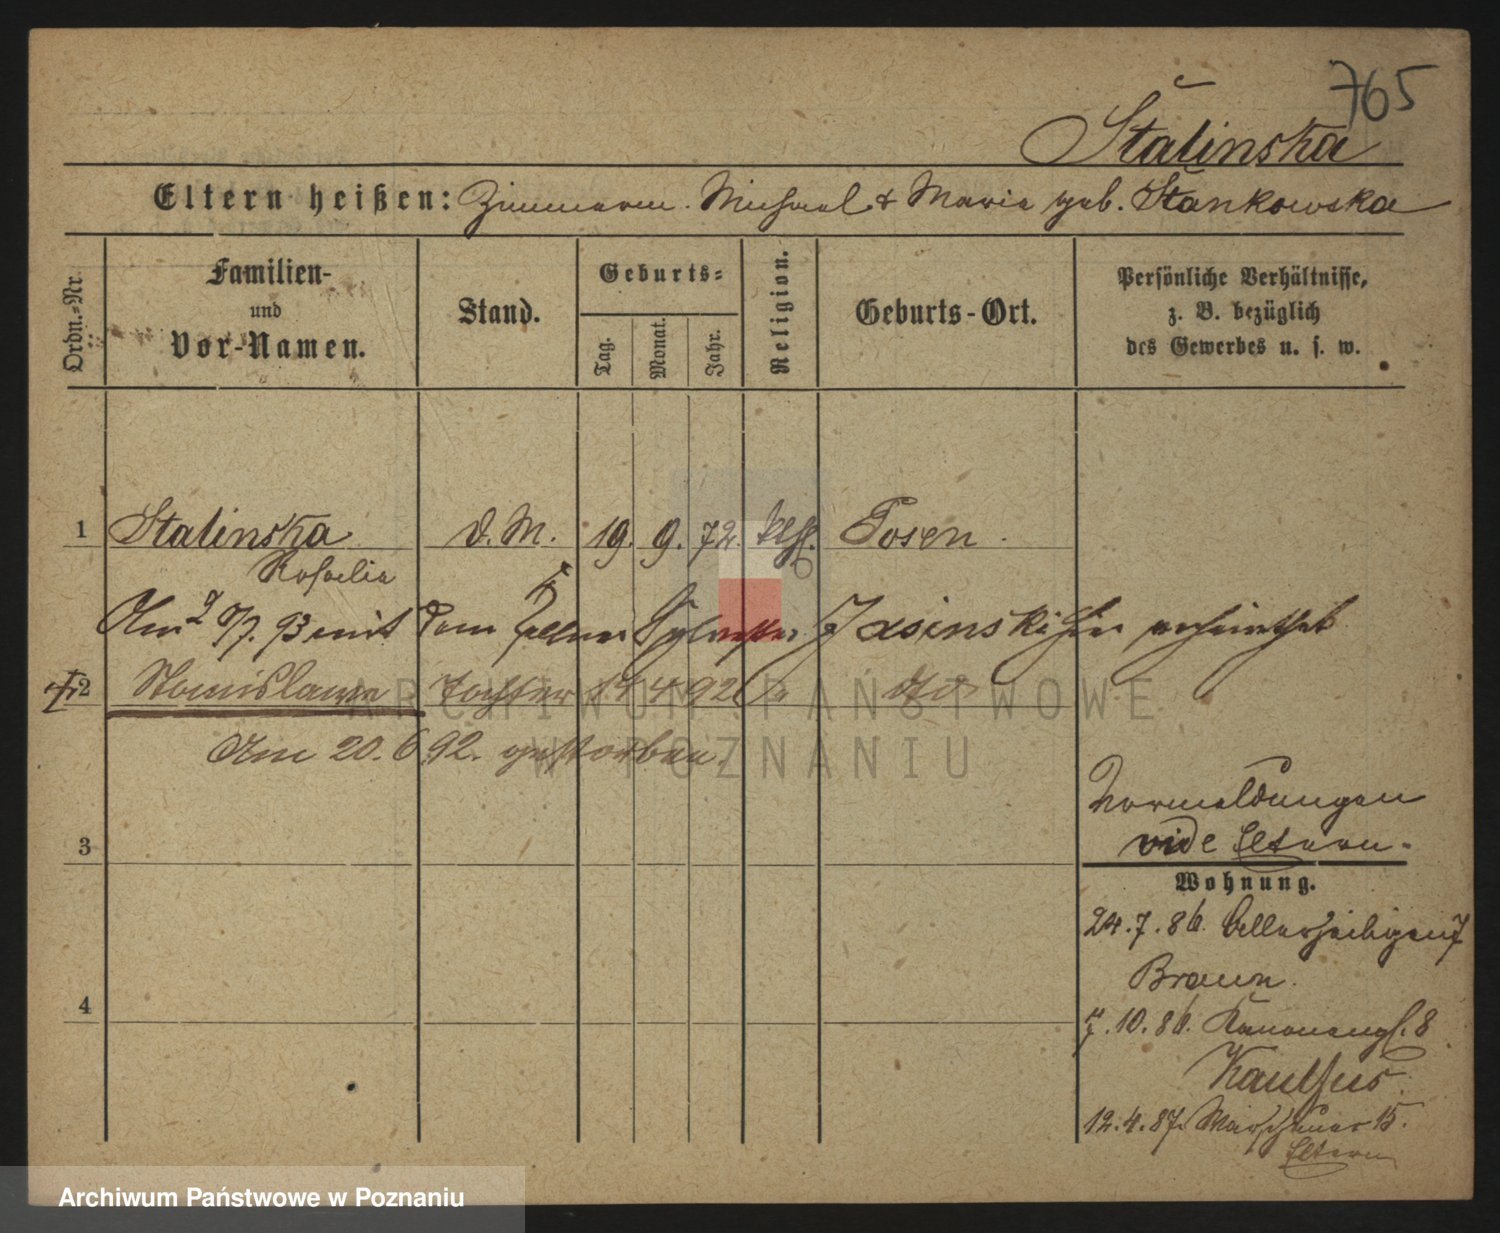 765
Stalinska
Eltern heißen: Zimmerm. Michael & Maria geb. Stankowska
Ordn.-Nr.
Familien-
und
Vor-Namen.
Stand.
Geburts-
Tag.
Monat.
Jahr.
Religion.
Geburts-Ort.
Persönliche Verhältnisse,
z. B. bezüglich
des Gewerbes u. s. w.
1 Stalinska d. M. 19. 9. 72. Posen
Rosalia
mit dem Sylvester Jasinski hier verheirathet
2 Stanislawa Tochter 4 92 do
Am 20. 6. 92. gestorben.
3
Vormeldungen
vide Eltern.
Wohnung.
24. 7. 86. Allerheiligen 7
Braun.
4
7. 10. 86. Kanoneng. 8
12. 4. 87. Warschauer 15.
Eltern
ARCHIWUM PAŃSTWOWE
W POZNANIU
Archiwum Państwowe w Poznaniu